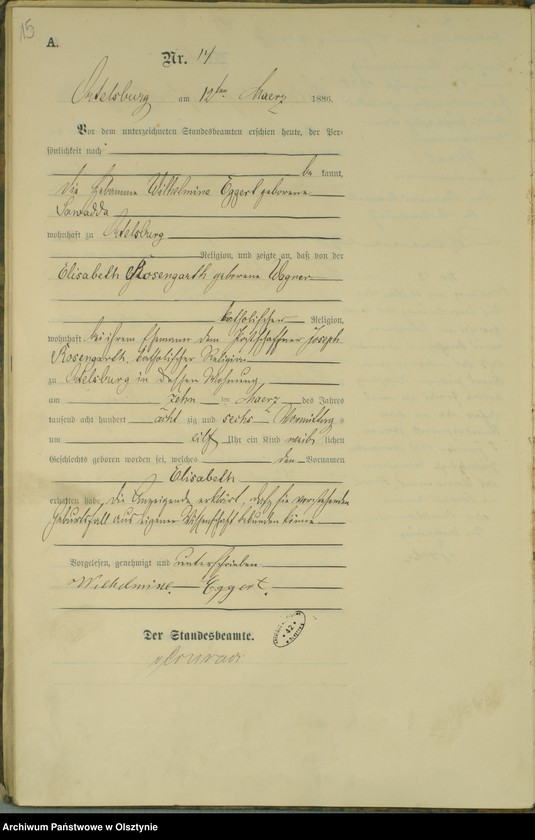 15
A.
Nr. 14
Ortelsburg am 12ten Maerz 1886.
Vor dem unterzeichneten Standesbeamten erschien heute, der Per-
sönlichkeit nach
be kannt,
die Hebamme Wilhelmine Eggert geborene
Sawadda
wohnhaft zu Ortelsburg
Religion, und zeigte an, daß von der
Elisabeth Rosengarth geborene Wagner
katholischer Religion,
wohnhaft bei ihrem Ehemann dem Postschaffner Joseph
Rosengarth, katholischer Religion
zu Ortelsburg in dessen Wohnung
am zehn ten Maerz des Jahres
tausend acht hundert acht zig und sechs Vormittag s
um eilf Uhr ein Kind weib lichen
Geschlechts geboren worden sei, welches den Vornamen
Elisabeth
erhalten habe, die Anzeigende erklärt, daß sie vorstehenden
Geburtsfall aus eigener Wissenschaft bekunden könne
Vorgelesen, genehmigt und unterschrieben
Wilhelmine Eggert.
Der Standesbeamte.
42
Archiwum Państwowe w Olsztynie